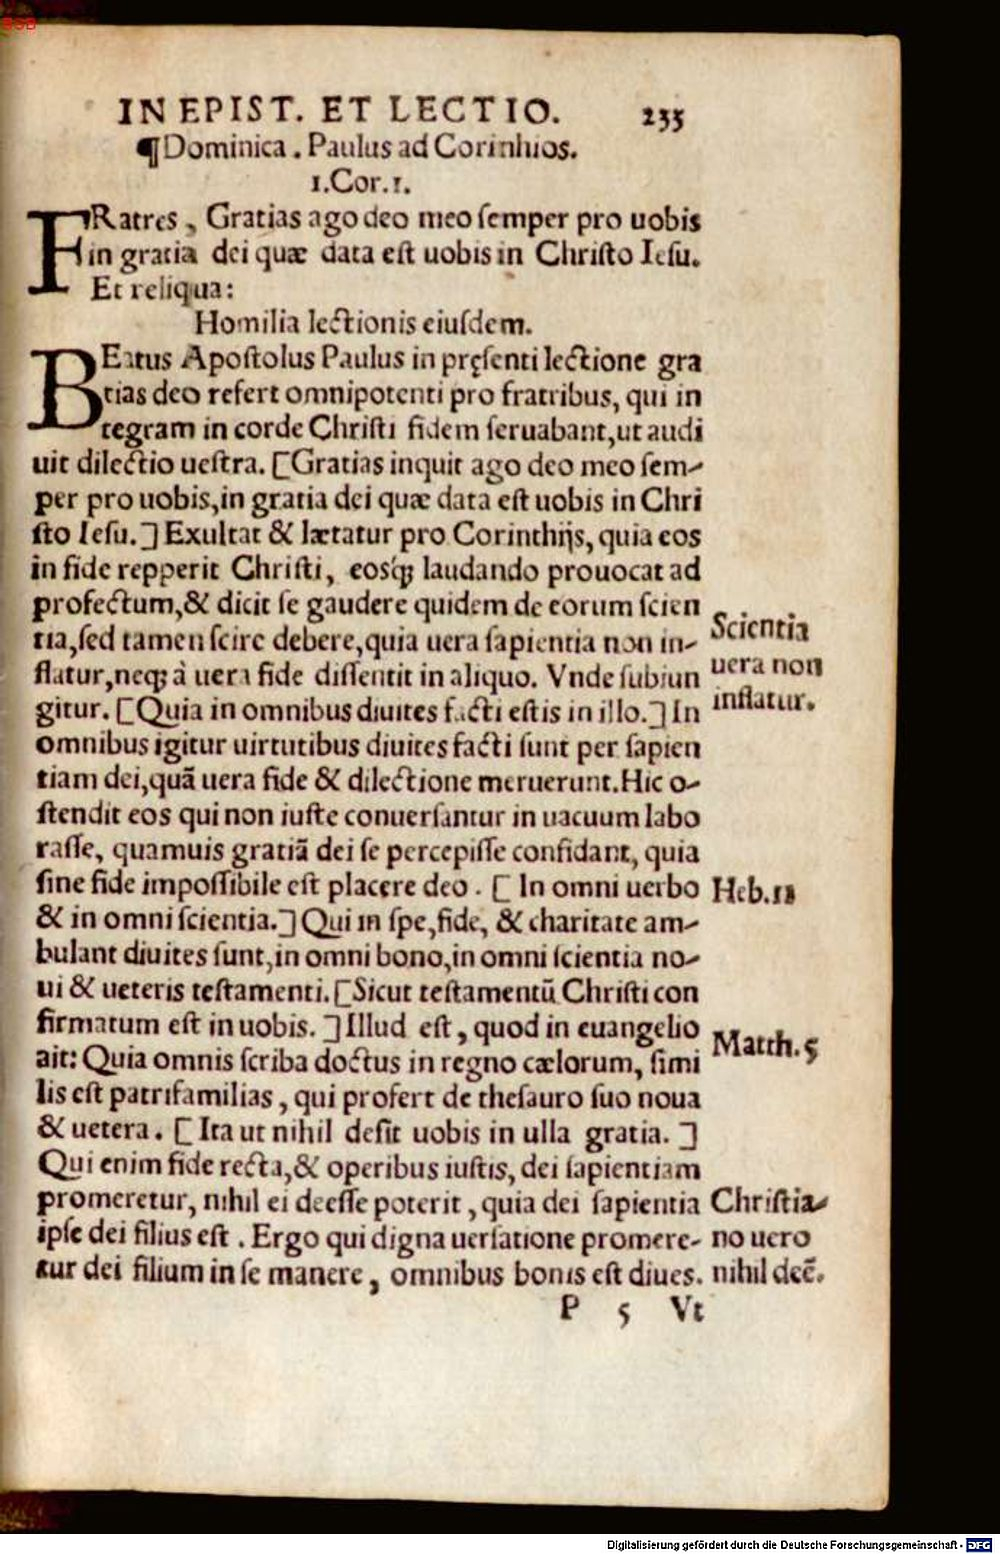 IN EPIST. ET LECTIO. 235
¶Dominica. Paulus ad Corinhios.
1.Cor.1.
FRatres, Gratias ago deo meo semper pro uobis
in gratia dei quæ data est uobis in Christo Iesu.
Et reliqua:
Homilia lectionis eiusdem.
BEatus Apostolus Paulus in pręsenti lectione gra
tias deo refert omnipotenti pro fratribus, qui in
tegram in corde Christi fidem seruabant, ut audi
uit dilectio uestra. [Gratias inquit ago deo meo sem-
per pro uobis, in gratia dei quæ data est uobis in Chri
sto Iesu.] Exultat & lætatur pro Corinthijs, quia eos
in fide repperit Christi, eosq; laudando prouocat ad
profectum, & dicit se gaudere quidem de eorum scien
tia, sed tamen scire debere, quia uera sapientia non in-
flatur, neq; à uera fide dissentit in aliquo. Vnde subiun
gitur. [Quia in omnibus diuites facti estis in illo.] In
omnibus igitur uirtutibus diuites facti sunt per sapien
tiam dei, quã uera fide & dilectione meruerunt. Hic o-
stendit eos qui non iuste conuersantur in uacuum labo
rasse, quamuis gratiã dei se percepisse confidant, quia
sine fide impossibile est placere deo. [In omni uerbo
& in omni scientia.] Qui in spe, fide, & charitate am-
bulant diuites sunt, in omni bono, in omni scientia no-
ui & ueteris testamenti. [Sicut testamentũ Christi con
firmatum est in uobis.] Illud est, quod in euangelio
ait: Quia omnis scriba doctus in regno cælorum, simi
lis est patrifamilias, qui profert de thesauro suo noua
& uetera. [Ita ut nihil desit uobis in ulla gratia.]
Qui enim fide recta, & operibus iustis, dei sapientiam
promeretur, nihil ei deesse poterit, quia dei sapientia
ipse dei filius est. Ergo qui digna uersatione promere-
tur dei filium in se manere, omnibus bonis est diues.
P 5 Vt
Scientia
uera non
inflatur.
Heb.11
Matth.5
Christia-
no uero
nihil deẽ.
Digitalisierung gefördert durch die Deutsche Forschungsgemeinschaft - DFG